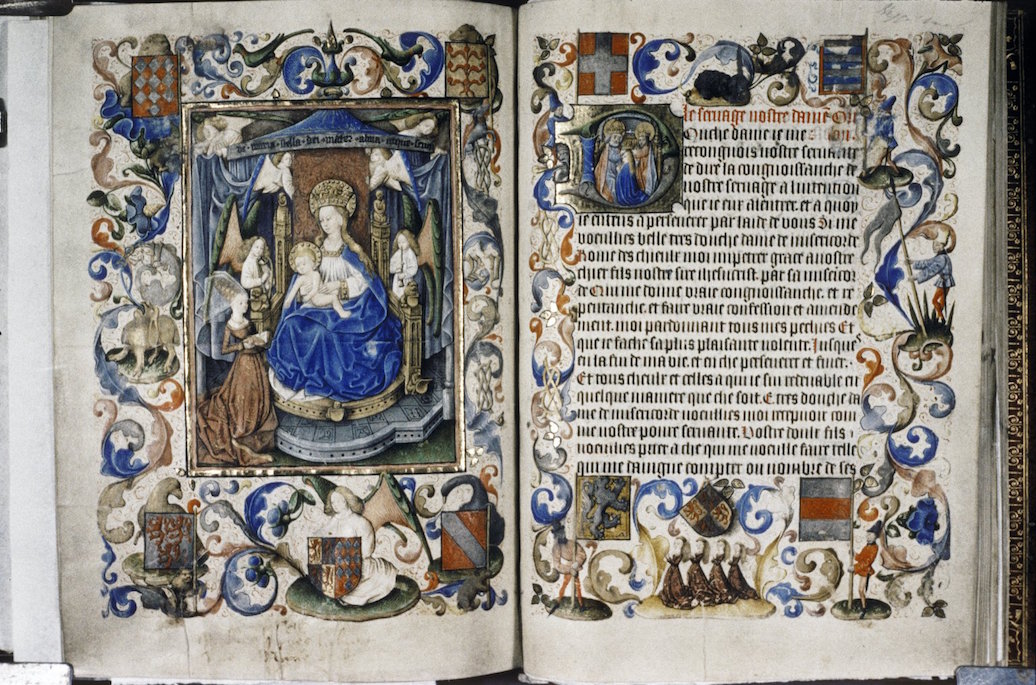 ve maris stella dei mater alma atque semp
le servage nostre dame
Ouche dame ie me
recongnois vostre servante
de dire la congnoissanche de
vostre servage a lintention
que ie eur alentree. et a quoy
ie entens a perseverer par laide de vous Si me
voeullies belle tres douche dame de misericorde
Roine des chieulx moi impetrer grace a vostre
chier fils nostre sire ihesucrist. par sa misericor
de Qui me doinne vraie congnoissanche. et re
pentanche. et faire vraie confession et amende
ment. moi pardonnant tous mes pechies Et
que ie fache sa plus plaisante volente. Jusques
en la fin de ma vie. et en che perseverer et finer.
Et tous cheulx et celles a qui ie sui redevable en
quelque maniere que che soit. E tres douche da
me de misericorde voeullies moi rechevoir com
me vostre povre servante. Vostre doulx fils
voeullies prier a che qui me voeulle faire telle
qui me daingne compter ou nombre de ses